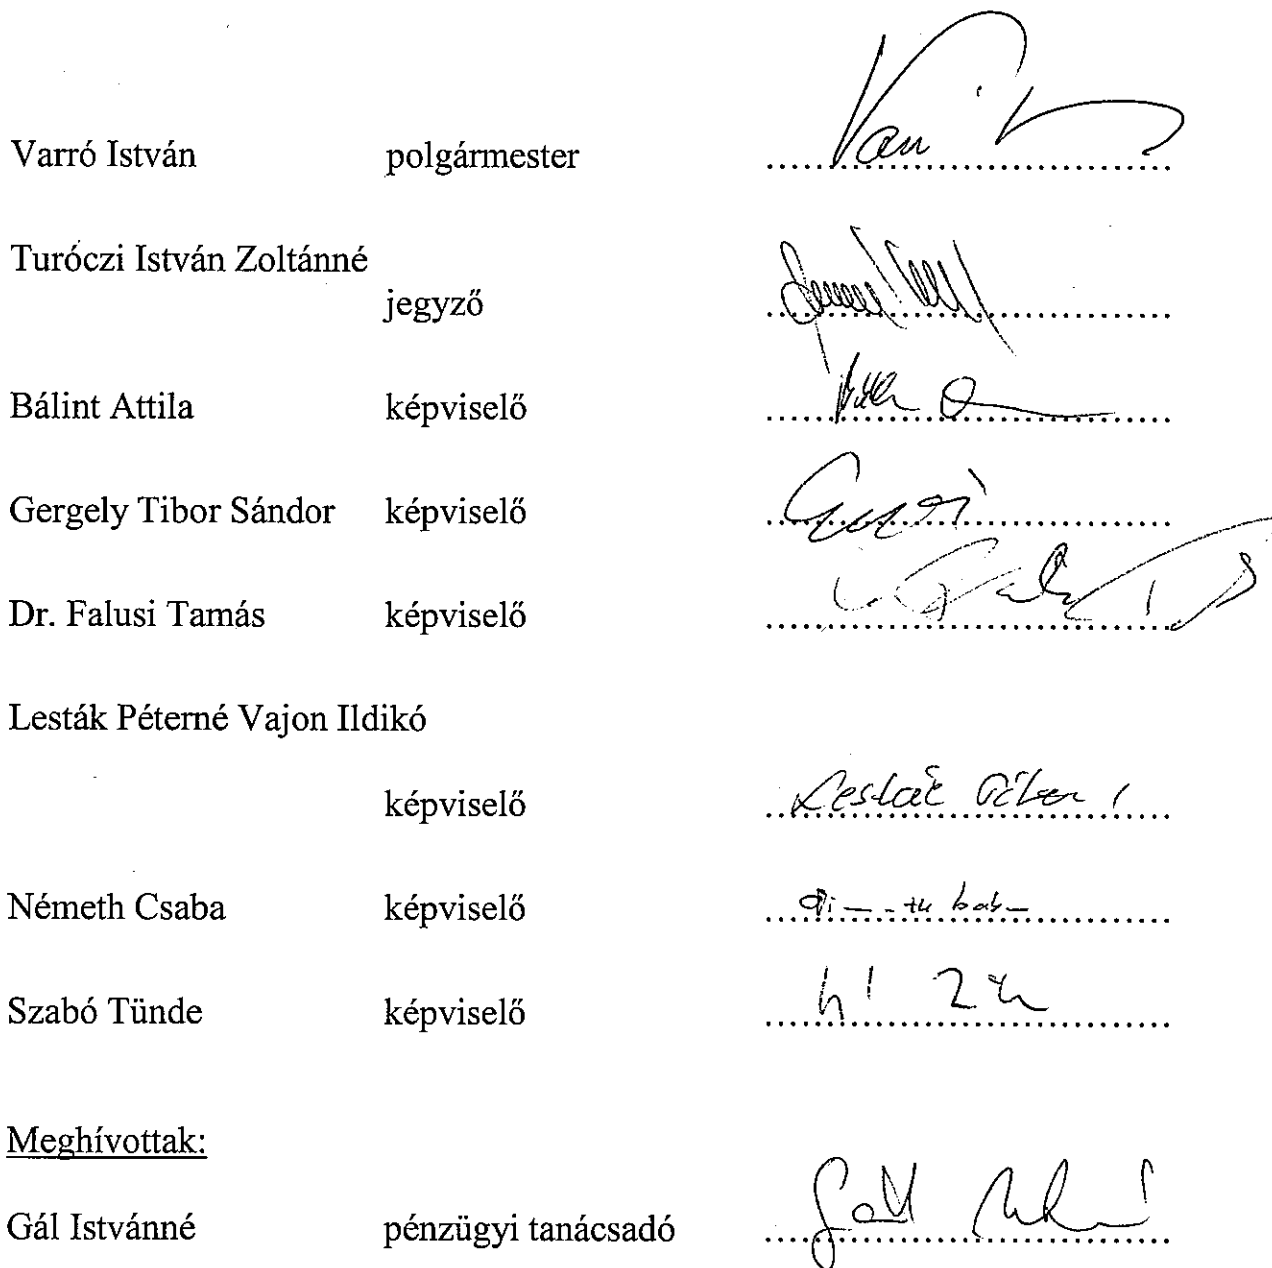 Varró István polgármester
Turóczi István Zoltánné
jegyző
Bálint Attila képviselő
Gergely Tibor Sándor képviselő
Dr. Falusi Tamás képviselő
Lesták Péterné Vajon Ildikó
képviselő
Németh Csaba képviselő
Szabó Tünde képviselő
Meghívottak:
Gál Istvánné pénzügyi tanácsadó